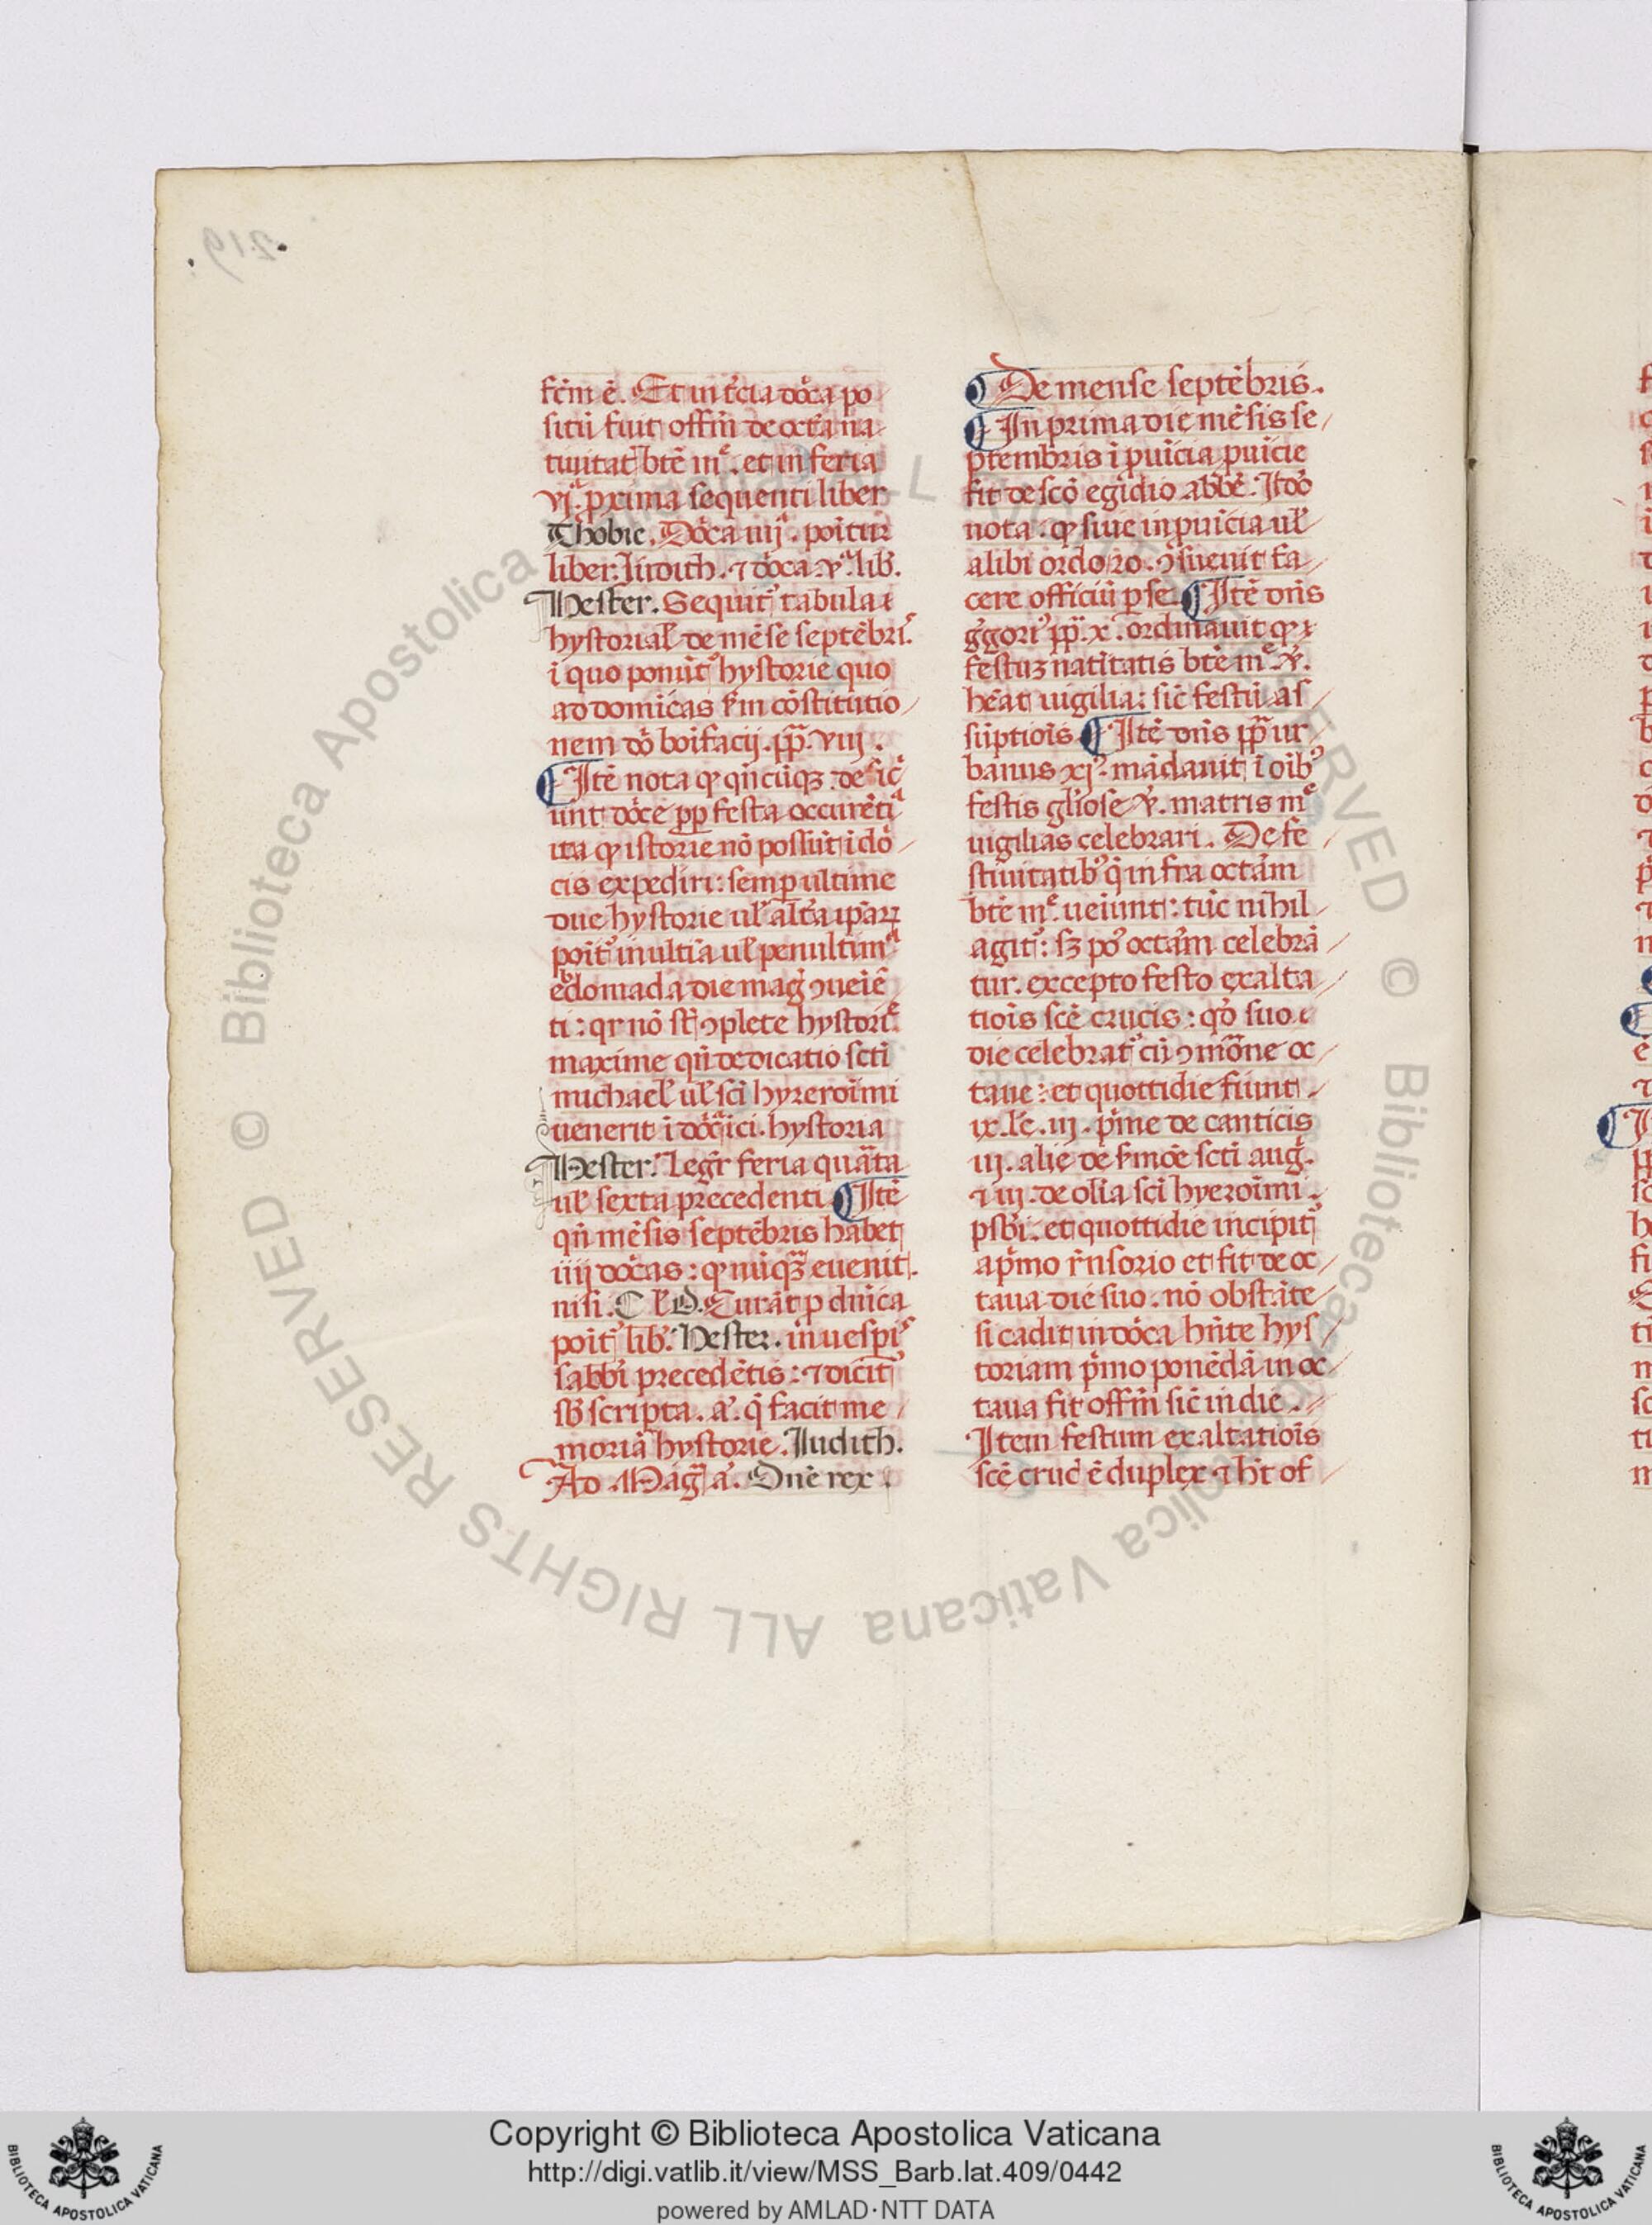 fc̃m ẽ. Et in t̃cia dõca po
situ᷑ fuit offm̃ de octa᷑ na
tiuitat᷑ bt̃e mᵉ. et in feria
vjᵃ. p̃xima sequenti liber
Thobie. Dõca iiijᵃ. poitur
liber. Judith. ⁊ dõca. vᵃ. lib̃.
Hester. Sequit᷑ tabula
hystorial᷑ de mẽse septẽbri᷑
ĩ quo ponũt᷑ hystorie quo
ad domĩcas s̃m cõstitutio
nem dõ boifacij. pp̃. viij.
Itẽ nota ꝙ qñcũqꝫ de
unt dõce ꝓp̃ festa occurẽtiᵃ
ita ꝙ istorie nõ possũt i dõ
cis expediri: semp̃ ultime
due hystorie ul᷑ alt̃a ip̃aꝝ
poĩt᷑ in ultĩa ul᷑ penultimᵃ
ebdomada die mag᷑ ꝯueiẽ
ti: qr nõ st̃ ꝯplete hystorie᷑
maxime qñ dedicatio scti
michael᷑ ul᷑ sci hyzeroĩmi
uenerit ĩ dõica ici. hystoria
Hester. Legr̃ feria quãta
ul᷑ sexta precedenti Itẽ
qñ mẽsis septẽbris habet
iiij dõcas: ꝙ nũqꝫ euenit
nisi. C l᷑ D. Curãt p dñica
poĩt᷑ lib̃. Hester. in uesp̃iˢ
sabb̃i precedẽtis: ⁊ dicit᷑
sb̃ scripta. a᷑. q̃ facit me
moriã hystorie. Judith.
Ad Mag̃ a᷑. Dñe rex.
De mense septẽbris.
In prima die mẽsis se
ptembris ĩ puĩcia puĩcie
fit de scõ egidio abb̃e. Itõ
nota. ꝙ siue in puĩcia ul᷑
alibi ordo ꝯsueuit fa
cere officiũ p se. Itẽ dñs
g̃gori᷑ pp̃. x. ordinauit ꝙ
festuꝫ natitatis bt̃e mᵉ. v᷑.
heat uigilia: sic᷑ festũ as
sũptiois Itẽ dñs pp̃ ur
banus xjˢ. mãdauit ĩ oib᷑
festis gl᷑iose v᷑. matris mᵉ
uigilias celebrari. De fe
stiuitatib᷑ q̃ infra octãm
bt̃e mᵉ ueiunt: tũc nihil
agit᷑: sꝫ po᷑ octãm celebrã
tur. excepto festo exalta
tiois scẽ crucis: qd̃ suo
die celebrat᷑ cũ ꝯmõne oc
taue: et quottidie fiunt
ix. lc̃. iij. p̃me de canticis
iij. alie de s̃moe scti aug̃.
⁊ iij. de olia sci hyeroĩmi
psb̃i. et quottidie incipit᷑
a p̃mo rñsorio et fit de oc
taua die suo. nõ obstãte
si cadit in dõca hñte hys
toriam p̃mo ponẽdã in oc
taua fit offm̃ sic᷑ in die.
Item festum exaltatiois
scẽ cruc᷑ ẽ duplex ⁊ ht̃ of
219
Copyright © Biblioteca Apostolica Vaticana
http://digi.vatlib.it/view/MSS_Barb.lat.409/0442
powered by AMLAD·NTT DATA
© Biblioteca Apostolica Vaticana ALL RIGHTS RESERVED
BIBLIOTECA APOSTOLICA VATICANA
BIBLIOTECA APOSTOLICA VATICANA